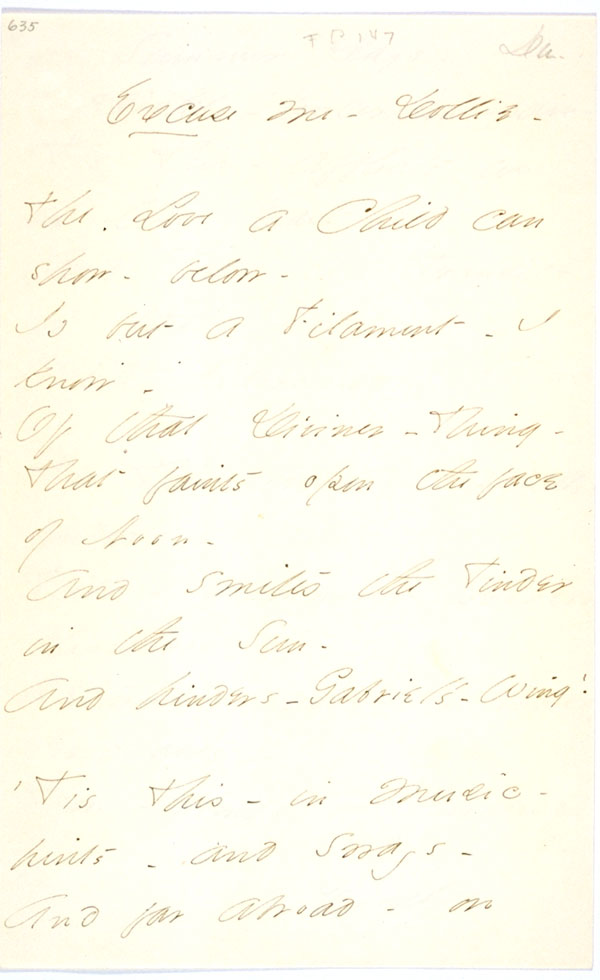 635
Excuse me - Dollie -
The Love a Child can
show - below -
Is but a Filament - I
know -
Of that Diviner - Thing -
That faints opon the face
of Noon -
And smites the Tinder
in the Sun -
And hinders - Gabriel's - Wing!
'Tis this - in Music -
hints - and sways -
And far abroad - on